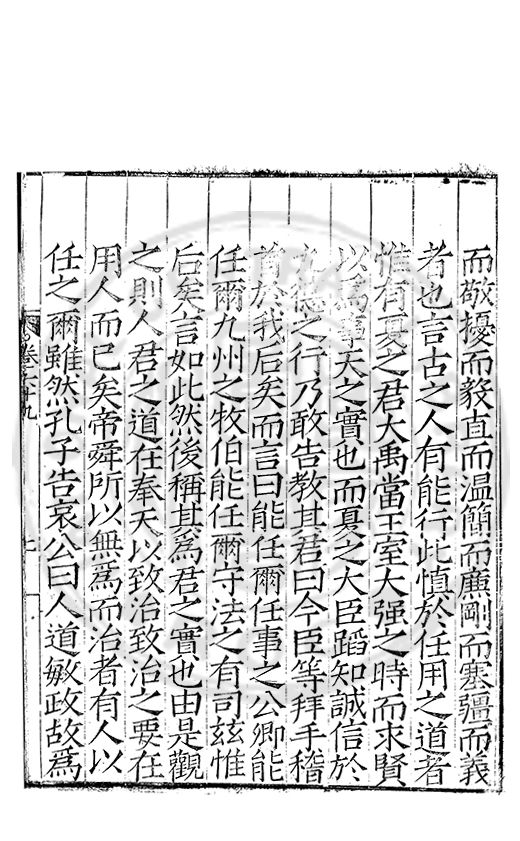 而敬擾而毅直而温簡而廉剛而塞彊而義
者也言古之人有能行此慎於任用之道者
惟有夏之君大禹當王室大强之時而求賢
以爲事天之實也而夏之大臣蹈知誠信於
九德之行乃敢告教其君曰今臣等拜手稽
首於我后矣而言曰能任爾任事之公卿能
任爾九州之牧伯能任爾守法之有司兹惟
后矣言如此然後稱其爲君之實也由是觀
之則人君之道在奉天以致治致治之要在
用人而已矣帝舜所以無爲而治者有人以
任之爾雖然孔子告哀公曰人道敏政故爲
卷六十九